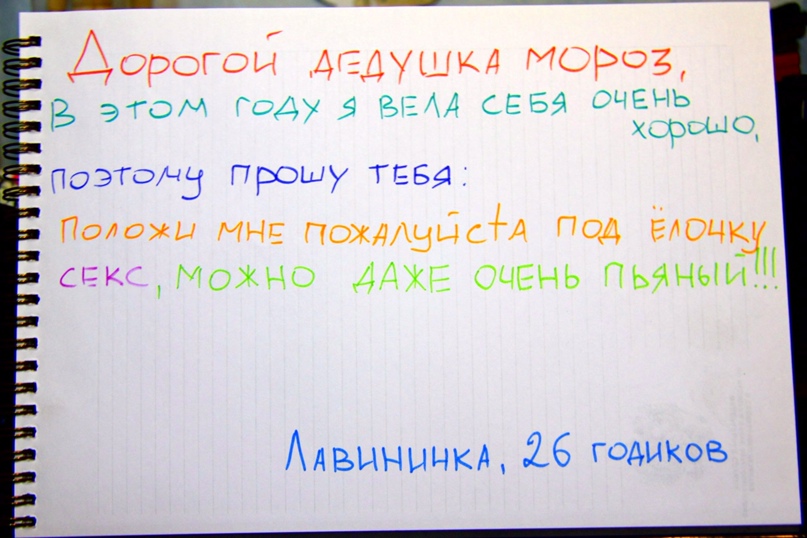 Дорогой дедушка мороз,
в этом году я вела себя очень
хорошо,
поэтому прошу тебя:
положи мне пожалуйста под ёлочку
секс, можно даже очень пьяный!!!
Лавининка, 26 годиков